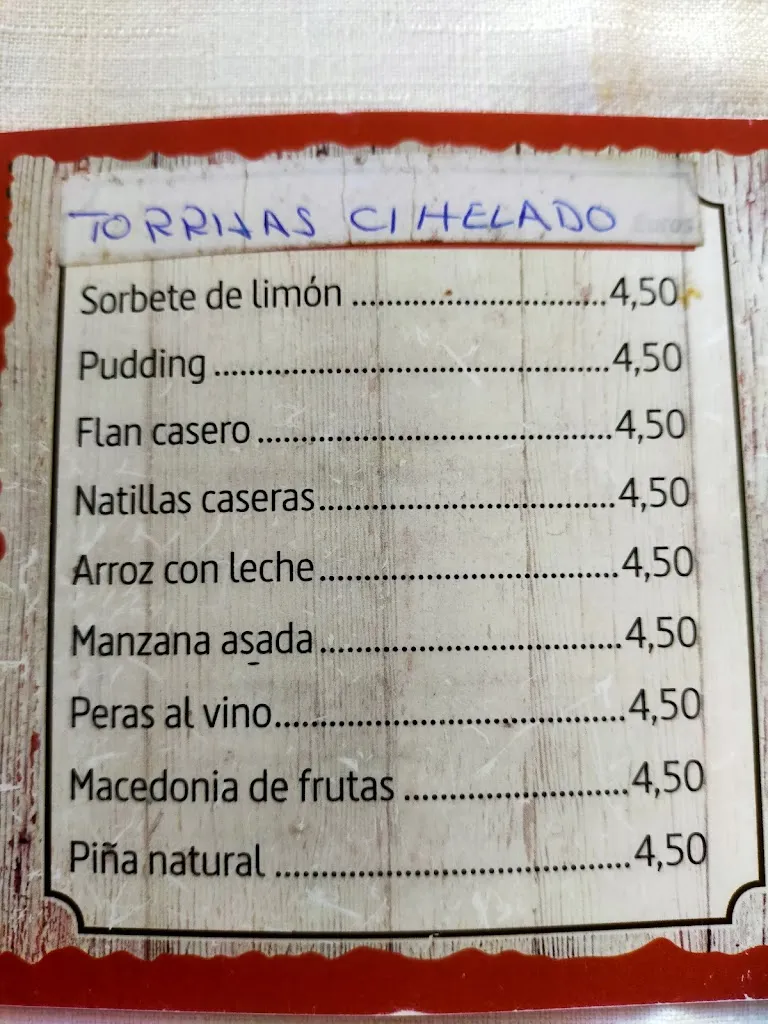 TORRIJAS C/ HELADO Euros
Sorbete de limón ............................4,50
Pudding ............................................4,50
Flan casero .......................................4,50
Natillas caseras.................................4,50
Arroz con leche.................................4,50
Manzana asada.................................4,50
Peras al vino......................................4,50
Macedonia de frutas .........................4,50
Piña natural ......................................4,50